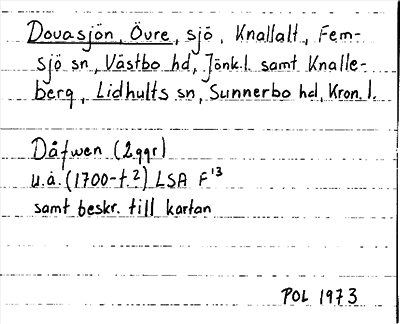 Dovasjön, Övre, sjö, Knallalt, Fem-
sjö sn, Västbo hd, Jönk.l. samt Knalle-
berg, Lidhults sn, Sunnerbo hd, Kron. l.
Dåfwen (2 ggr)
u.å. (1700-t.?) LSA F 13
samt beskr. till kartan
POL 1973